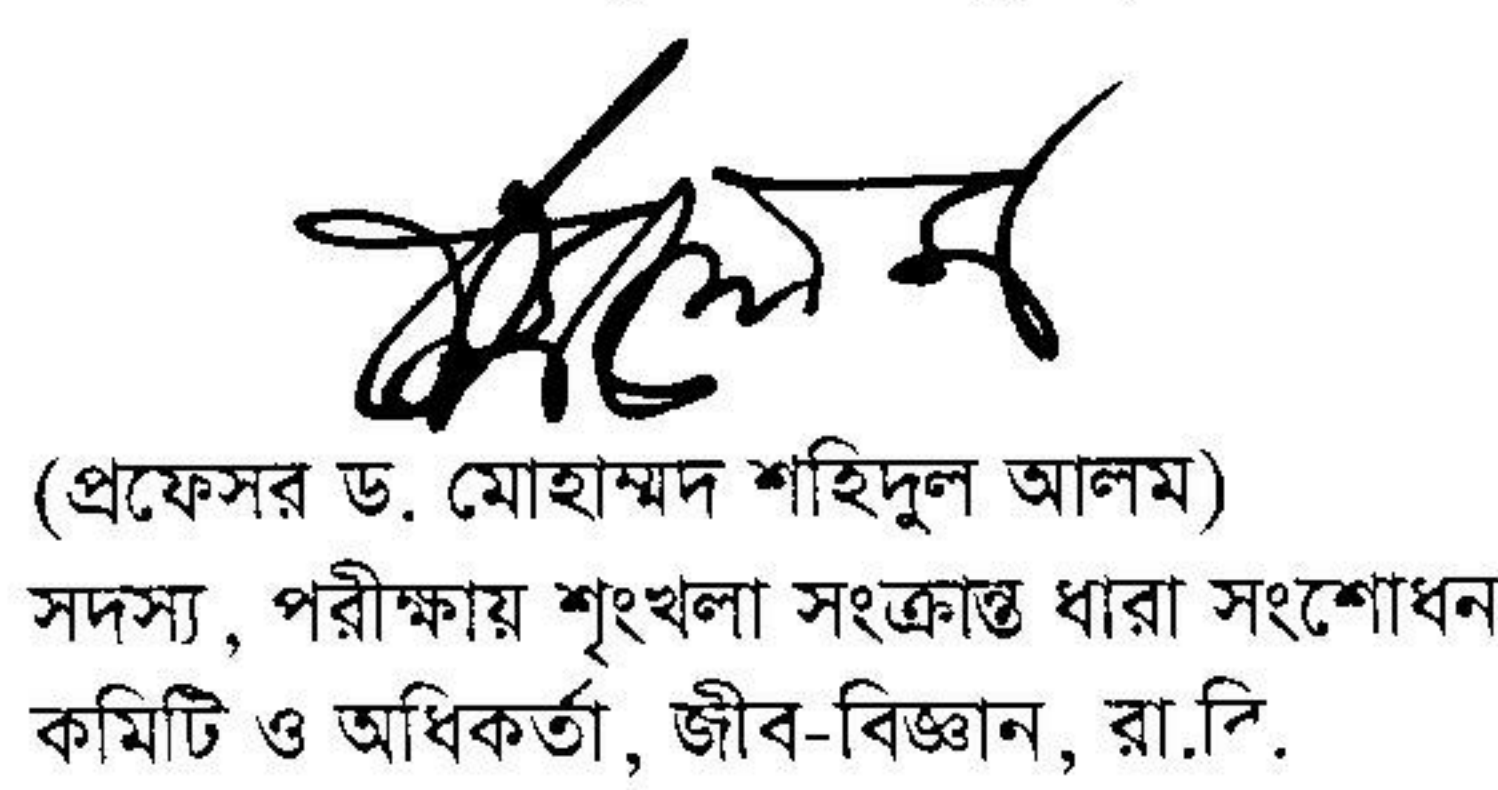 (প্রফেসর ড. মোহাম্মদ শহিদুল আলম)
সদস্য, পরীক্ষায় শৃংখলা সংক্রান্ত ধারা সংশোধন
কমিটি ও অধিকর্তা, জীব-বিজ্ঞান, রা.বি.